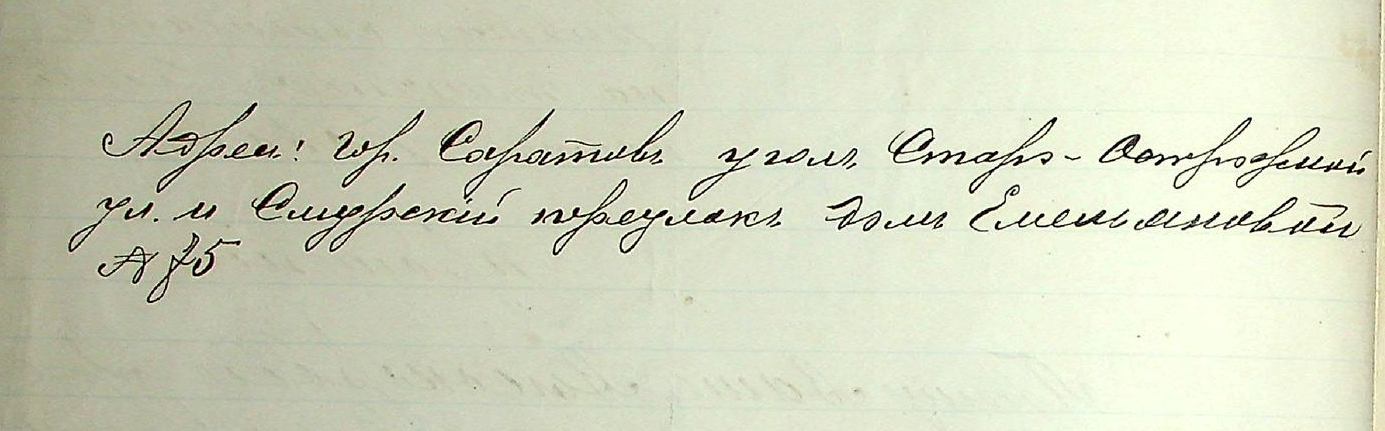 Адрес: гор. Саратовъ уголъ Старо-Острожной
ул. и Смурскій переулокъ домъ Емельяновой
№ 75